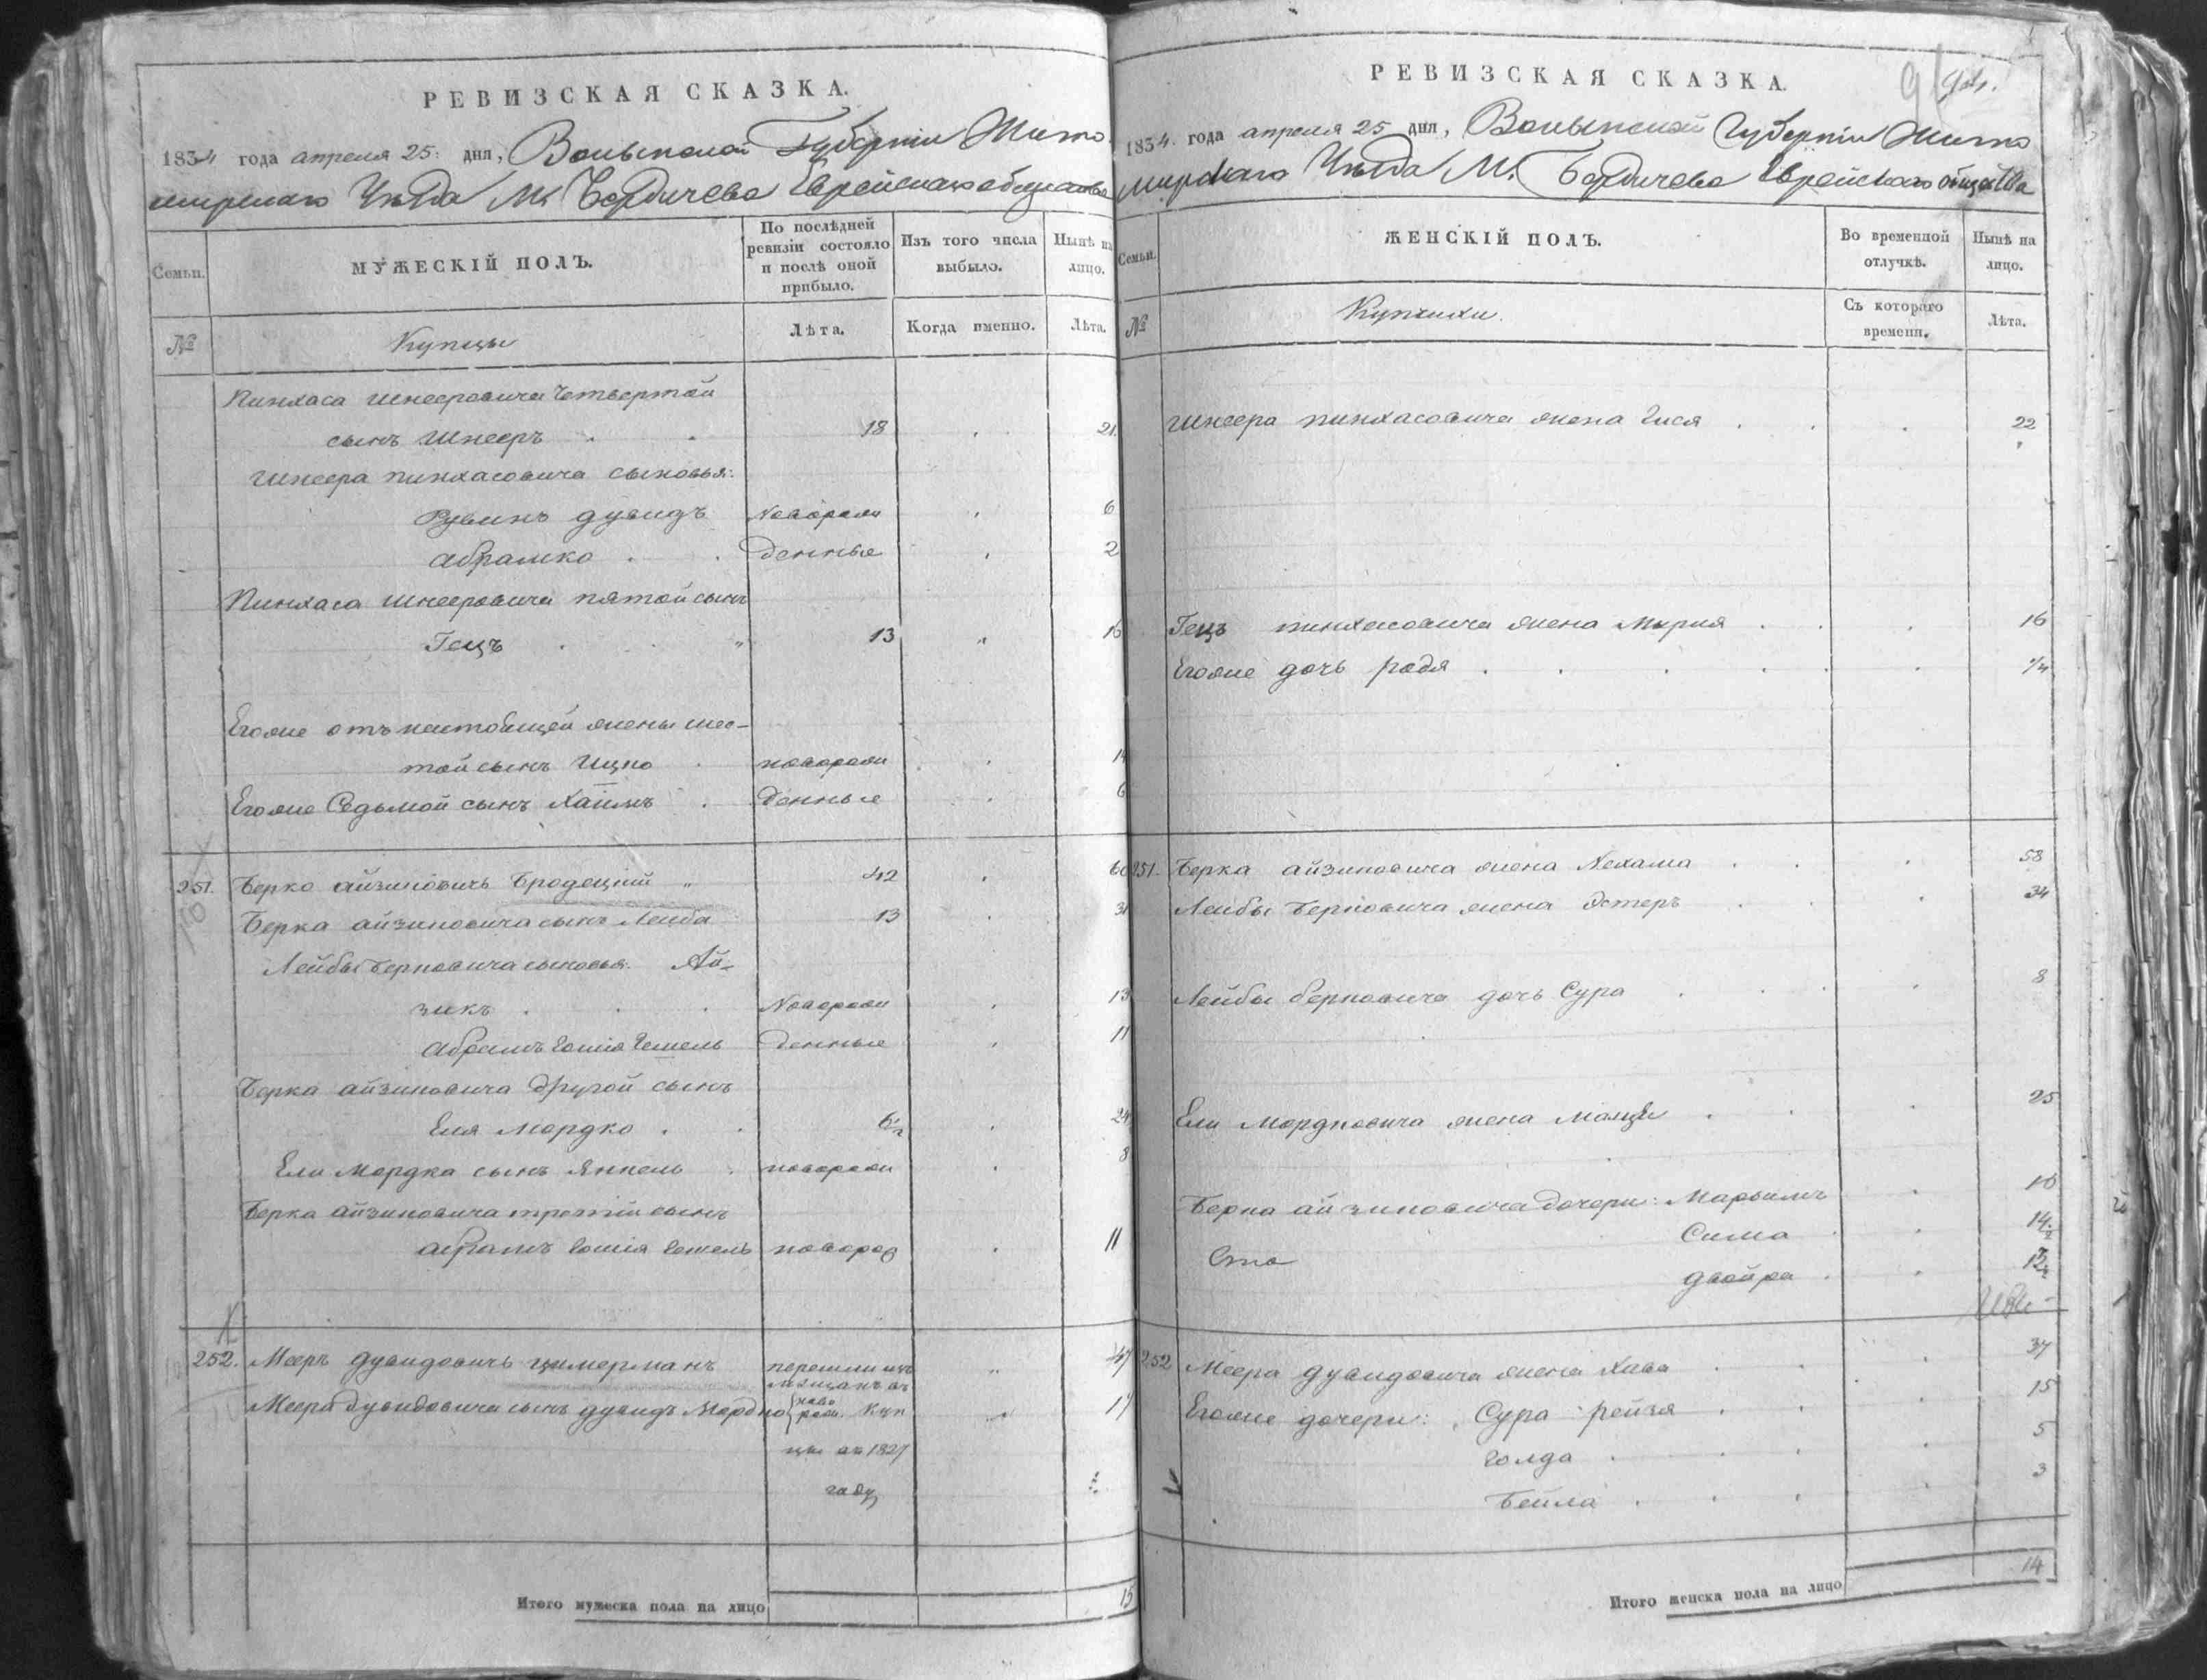 РЕВИЗСКАЯ СКАЗКА.
1834 года апреля 25 дня, Волынской Губерніи Жито
мирскаго Уѣзда М. Бердичева Еврейскаго общества
Семьи.
МУЖЕСКІЙ ПОЛЪ.
По послѣдней
ревизіи состояло
и послѣ оной
прибыло.
Изъ того числа
выбыло.
Нынѣ на
лицо.
№
Купцы
Лѣта.
Когда именно.
Лѣта.
Пинхаса Шнееровича Четвертой
сынъ Шнееръ 18 21.
Шнеера Пинхасовича сыновья:
Рувинъ Дувидъ Новорож 6
Абрамко денные 2
Пинхаса Шнееровича пятой сынъ
Гецъ 13 16
Егоже отъ настоящей жены шес-
той сынъ Ицко новорож 14
Егоже Седьмой сынъ Хаимъ денные 6
251. Берко Айзиковичъ Бродецкій 42 60
Берка Айзиковича сынъ Лейба 13 31
Лейбы Берковича сыновья: Ай-
зикъ Новорож 13
Абрамъ Гошія Гешель денные 11
Берка Айзиковича другой сынъ
Еля Мордко 6½ 24
Ели Мордка сынъ Янкель новорож 8
Берка Айзиковича третій сынъ
Абрамъ Гошія Гешель новорож 11
252. Мееръ Дувидовичъ Цимерманъ перешли изъ 47
мѣщанъ въ
Меера Дувидовича сынъ Дувидъ Мордко ново рож. куп 17
цы въ 1827
году
Итого мужеска пола на лицо 15
РЕВИЗСКАЯ СКАЗКА.
1834 года апреля 25 дня, Волынской Губерніи Жито
мирскаго Уѣзда М. Бердичева Еврейскаго общества
Семьи.
ЖЕНСКІЙ ПОЛЪ.
Во временной
отлучкѣ.
Нынѣ на
лицо.
№
Купчихи.
Съ котораго
времени.
Лѣта.
Шнеера Пинхасовича жена Гися 22
Гецъ Пинхасовича жена Мирля 16
Егоже дочь Родя ¼
251. Берка Айзиковича жена Нехама 58
Лейбы Берковича жена Эстеръ 34
Лейбы Берковича дочь Сура 8
Ели Мордковича жена 25
Берка Айзиковича дочери: Марьимъ 16
Сима 14½
Двойра
252 Меера Дувидовича жена Хава 37
Егоже дочери: Сура Рейзя 15
Голда 5
Бейла 3
Итого женска пола на лицо 14